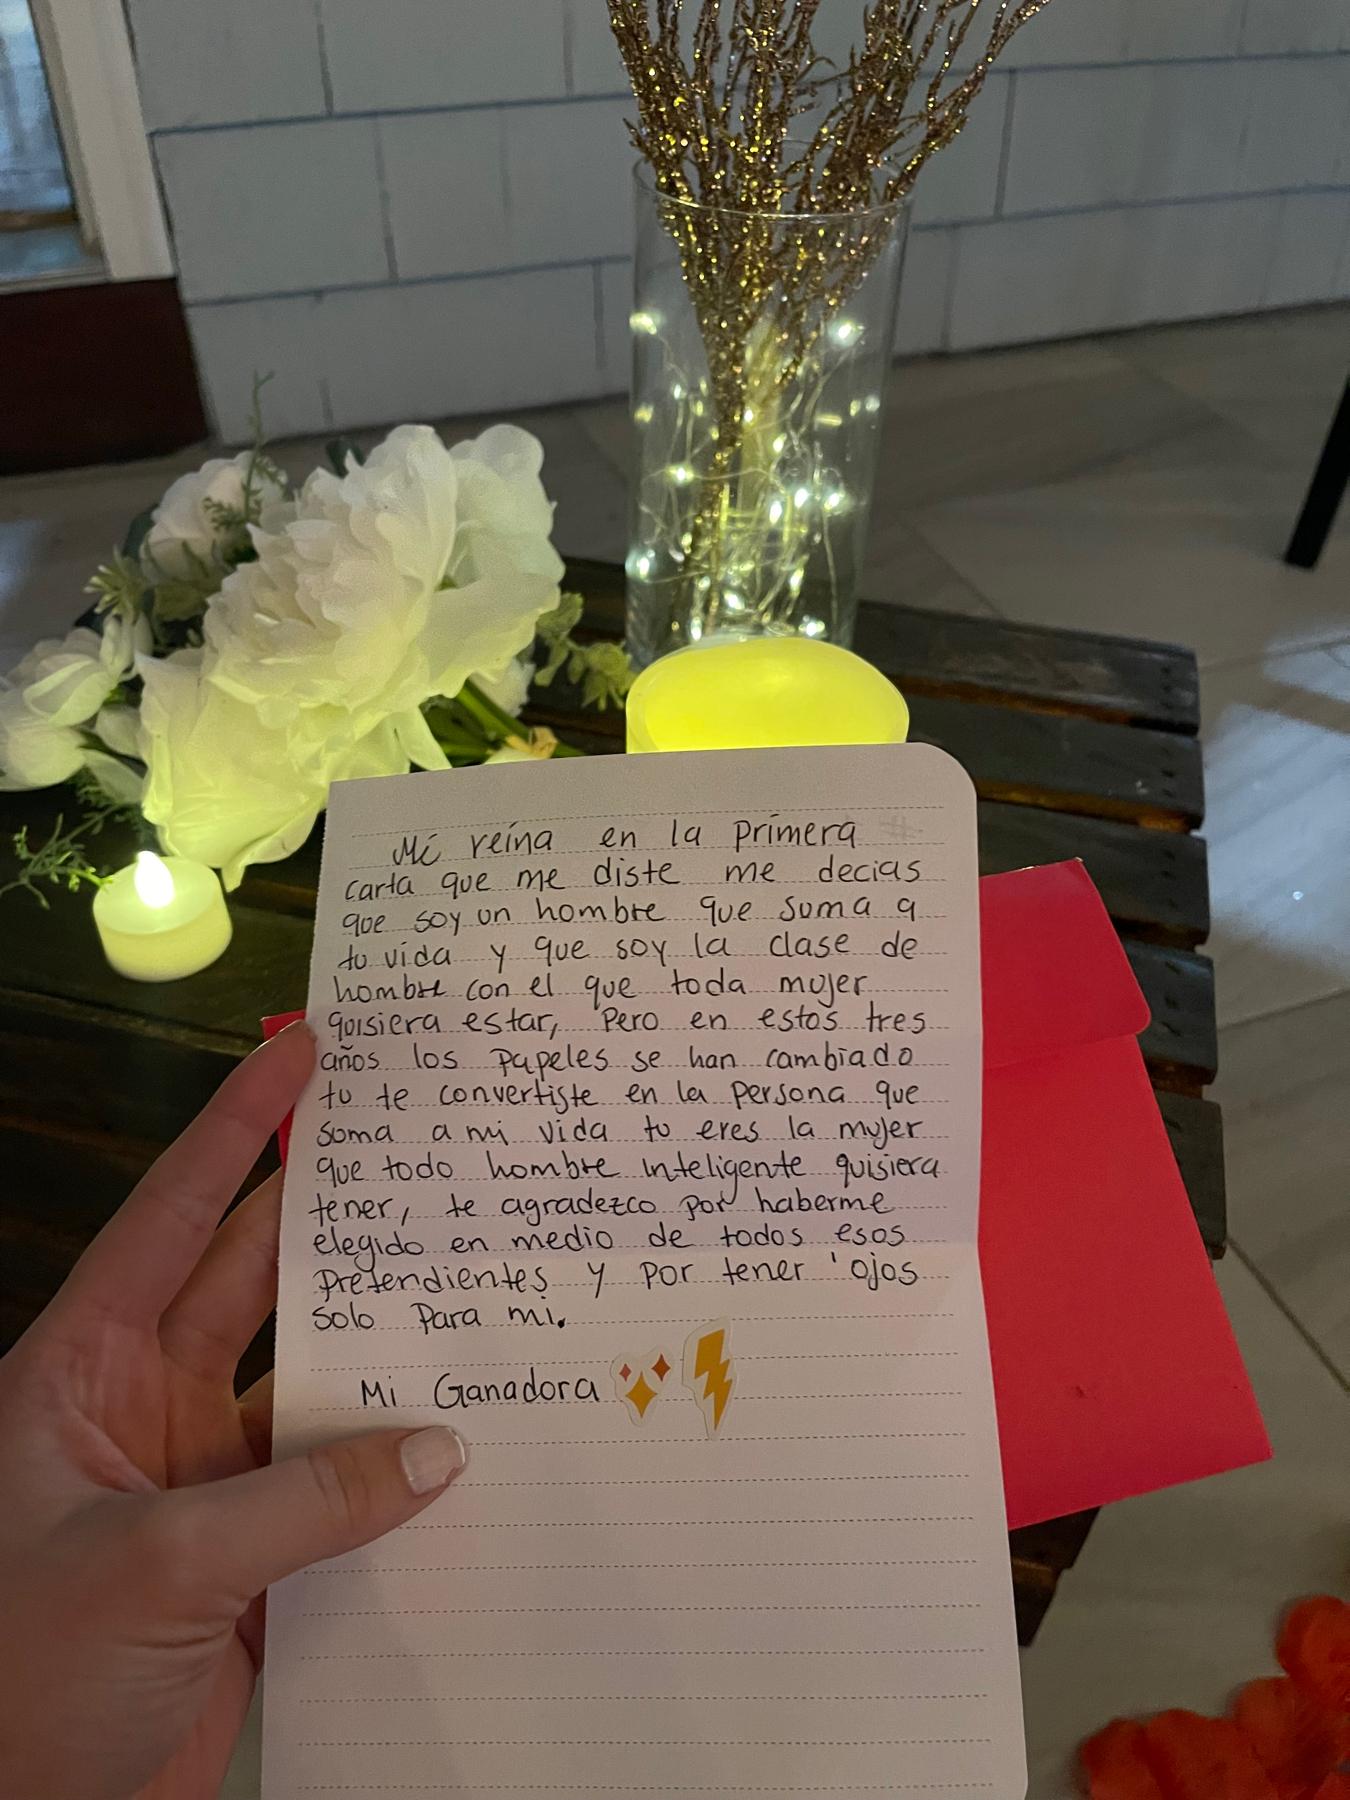 Mi reina en la primera
carta que me diste me decias
que soy un hombre que suma a
tu vida y que soy la clase de
hombre con el que toda mujer
quisiera estar, Pero en estos tres
años los papeles se han cambiado
tu te convertiste en la persona que
suma a mi vida tu eres la mujer
que todo hombre inteligente quisiera
tener, te agradezco por haberme
elegido en medio de todos esos
pretendientes y por tener 'ojos
solo para mi.
Mi Ganadora